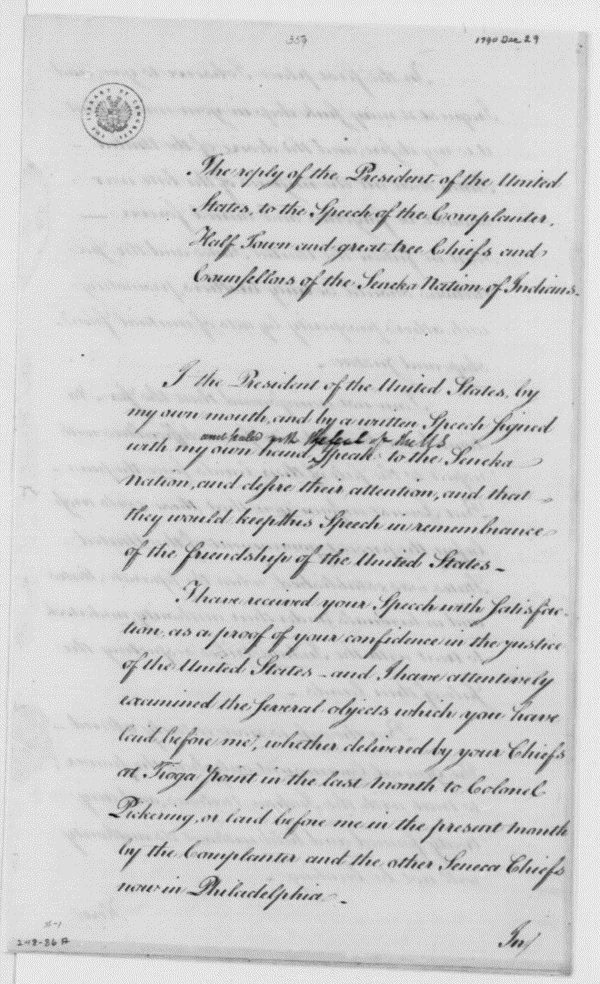 357
1790 Dec 29
LIBRARY OF CONGRESS
The reply of the President of the United
States, to the Speech of the Cornplanter,
Half Town and great tree Chiefs and
Counsellors of the Seneka Nation of Indians.
I the President of the United States, by
my own mouth, and by a written Speech signed
and sealed with the seal of the US
with my own hand, Speak to the Seneka
Nation, and desire their attention, and that
they would keep this Speech in remembrance
of the friendship of the United States—
I have received your Speech with Satisfac-
tion, as a proof of your confidence in the justice
of the United States – and I have attentively
examined the several objects which you have
laid before me, whether delivered by your Chiefs
at Tioga point in the last month to Colonel
Pickering, or laid before me in the present month
by the Cornplanter and the other Seneca Chiefs
now in Philadelphia—
In
248-86A